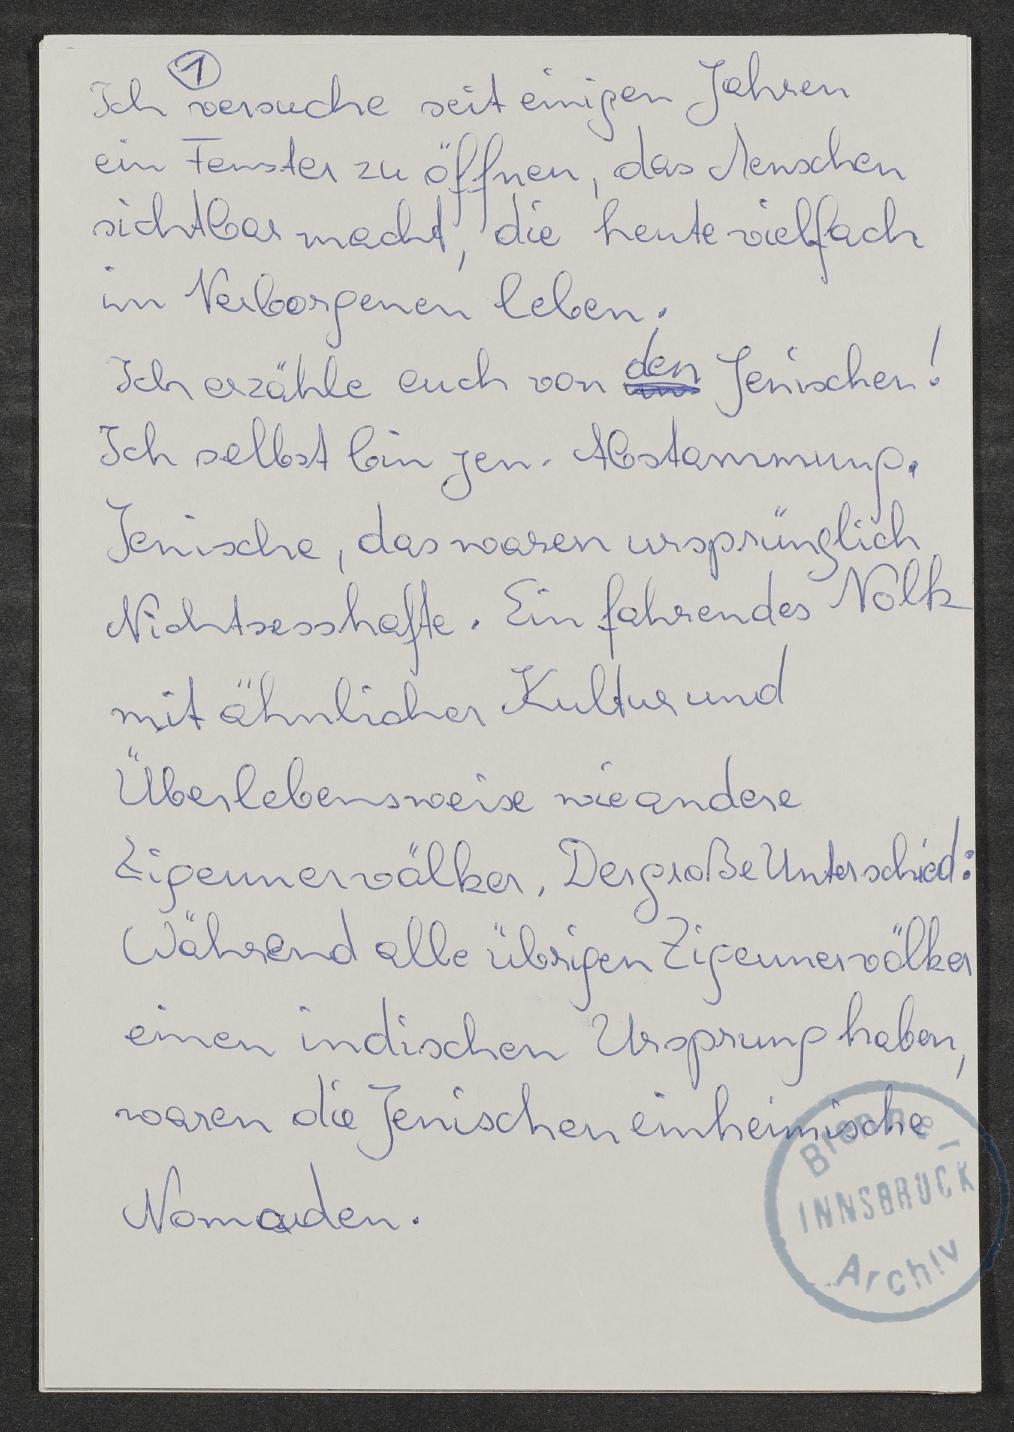 1
Ich versuche seit einigen Jahren
ein Fenster zu öffnen, das Menschen
sichtbar macht, die heute vielfach
im Verborgenen leben.
Ich erzähle euch von den Jenischen!
Ich selbst bin jen. Abstammung.
Jenische, das waren ursprünglich
Nichtsesshafte. Ein fahrendes Volk
mit ähnlicher Kultur und
Überlebensweise wie andere
Zigeunervölker. Der große Unterschied:
Während alle übrigen Zigeunervölker
einen indischen Ursprung haben,
waren die Jenischen einheimische
Nomaden.
Brenner-
INNSBRUCK
Archiv